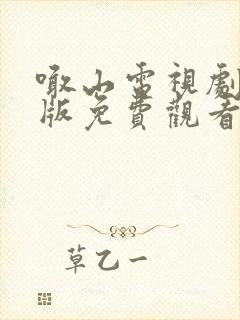 啾山雷視劇
版免費觀看
草乙一